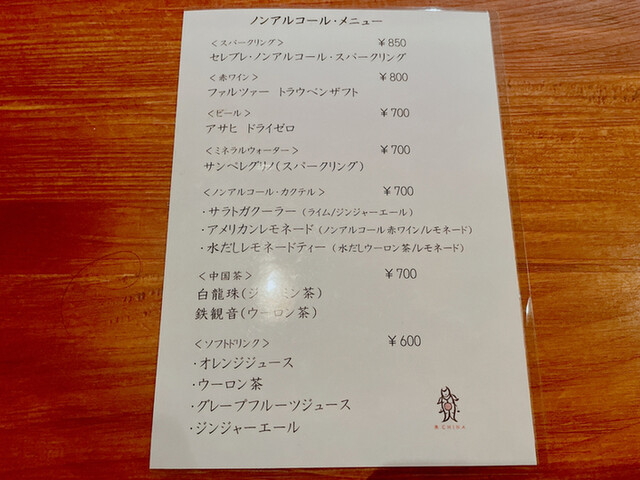 ノンアルコール・メニュー
＜スパークリング＞ ￥850
セレブレ・ノンアルコール・スパークリング
＜赤ワイン＞ ￥800
ファルツァー トラウベンザフト
＜ビール＞ ￥700
アサヒ ドライゼロ
＜ミネラルウォーター＞ ￥700
サンペレグリノ(スパークリング)
＜ノンアルコール・カクテル＞ ￥700
・サラトガクーラー (ライム/ジンジャーエール)
・アメリカンレモネード (ノンアルコール赤ワイン/レモネード)
・水だしレモネードティー (水だしウーロン茶/レモネード)
＜中国茶＞ ￥700
白龍珠(ジャスミン茶)
鉄観音(ウーロン茶)
＜ソフトドリンク＞ ￥600
・オレンジジュース
・ウーロン茶
・グレープフルーツジュース
・ジンジャーエール